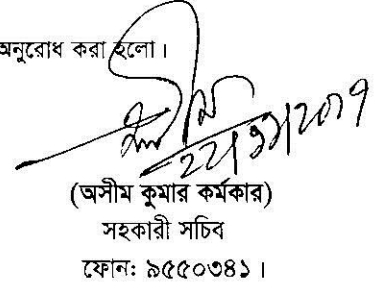 অনুরোধ করা হলো।
(অসীম কুমার কর্মকার)
সহকারী সচিব
ফোন: ৯৫৫০৩৪১।